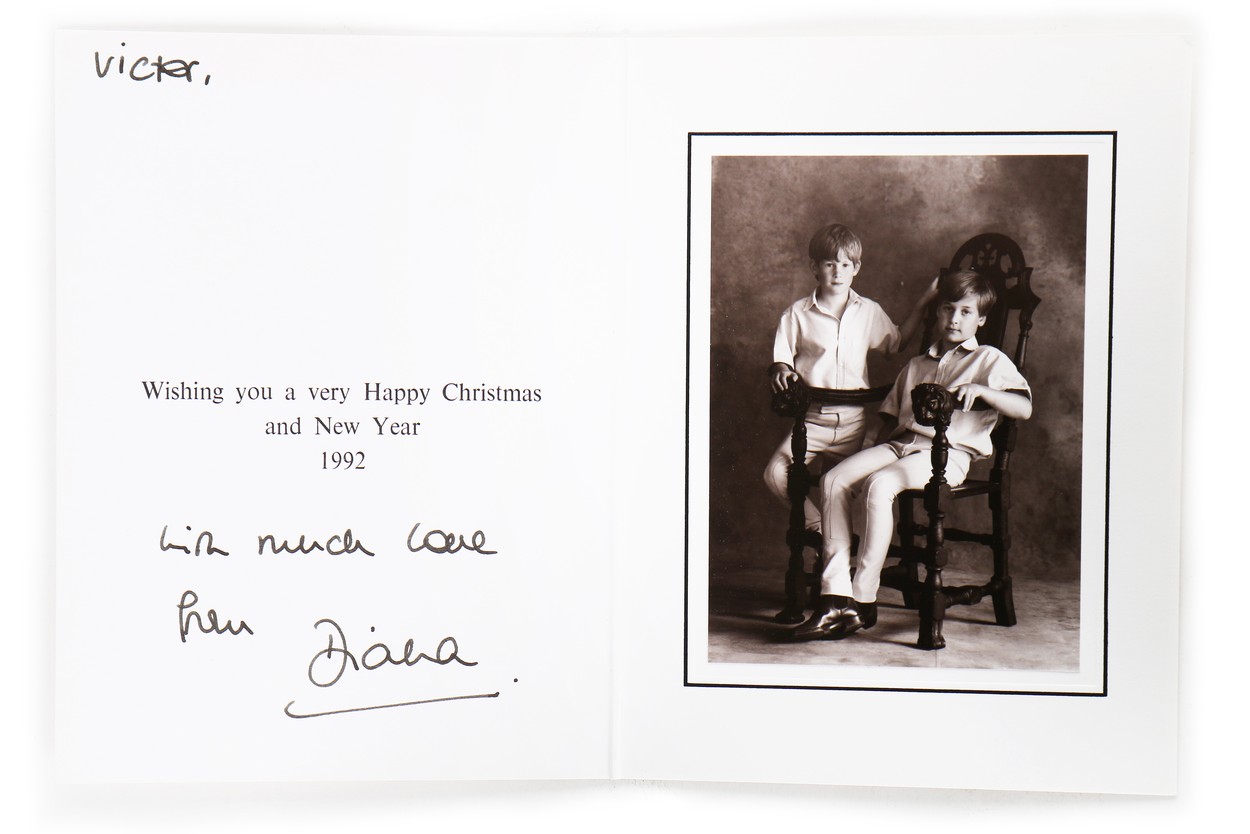 Victor,
Wishing you a very Happy Christmas
and New Year
1992
with much love
from
Diana.